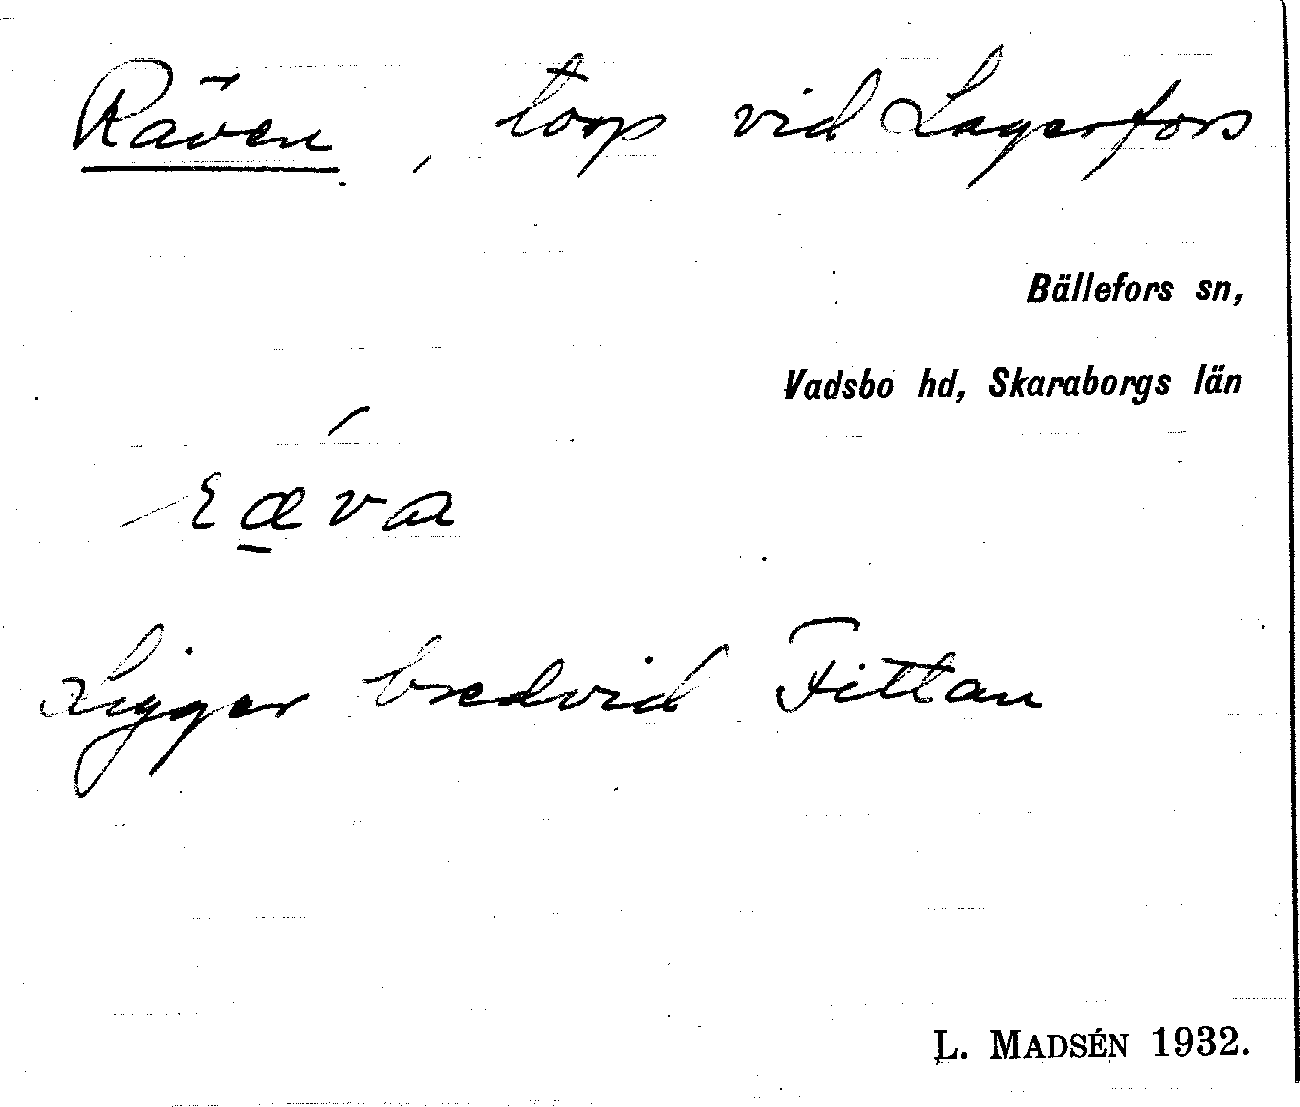 Räven, torp vid Lagerfors
Bällefors sn,
Vadsbo hd, Skaraborgs län
rǽ̱va
Ligger bredvid Fittan
L. MADSÉN 1932.